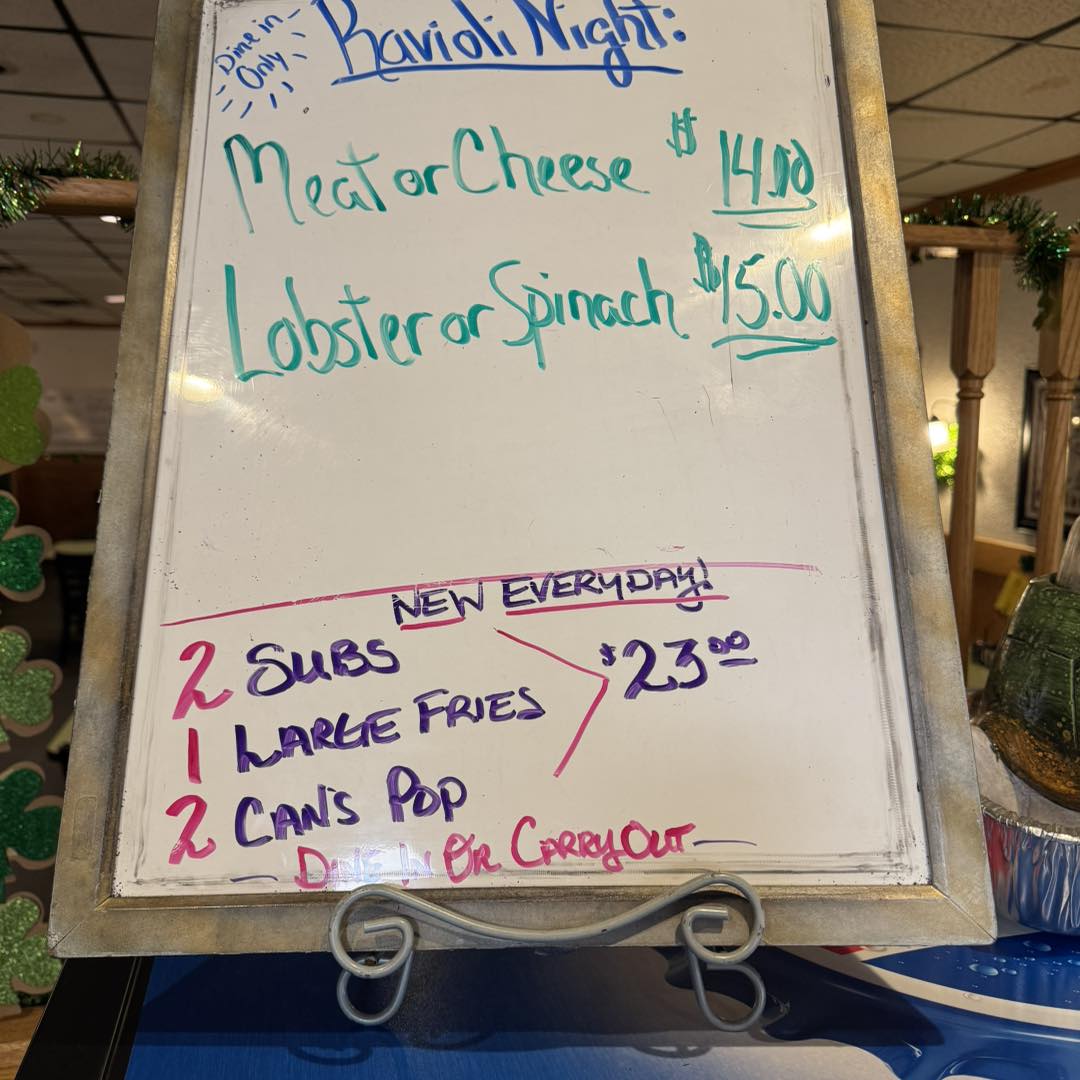 Dine in
Only
Ravioli Night:
Meat or Cheese $14.00
Lobster or Spinach $15.00
NEW EVERYDAY!
2 SUBS $23.00
1 LARGE FRIES
2 CAN'S POP
— DINE IN OR CARRYOUT —